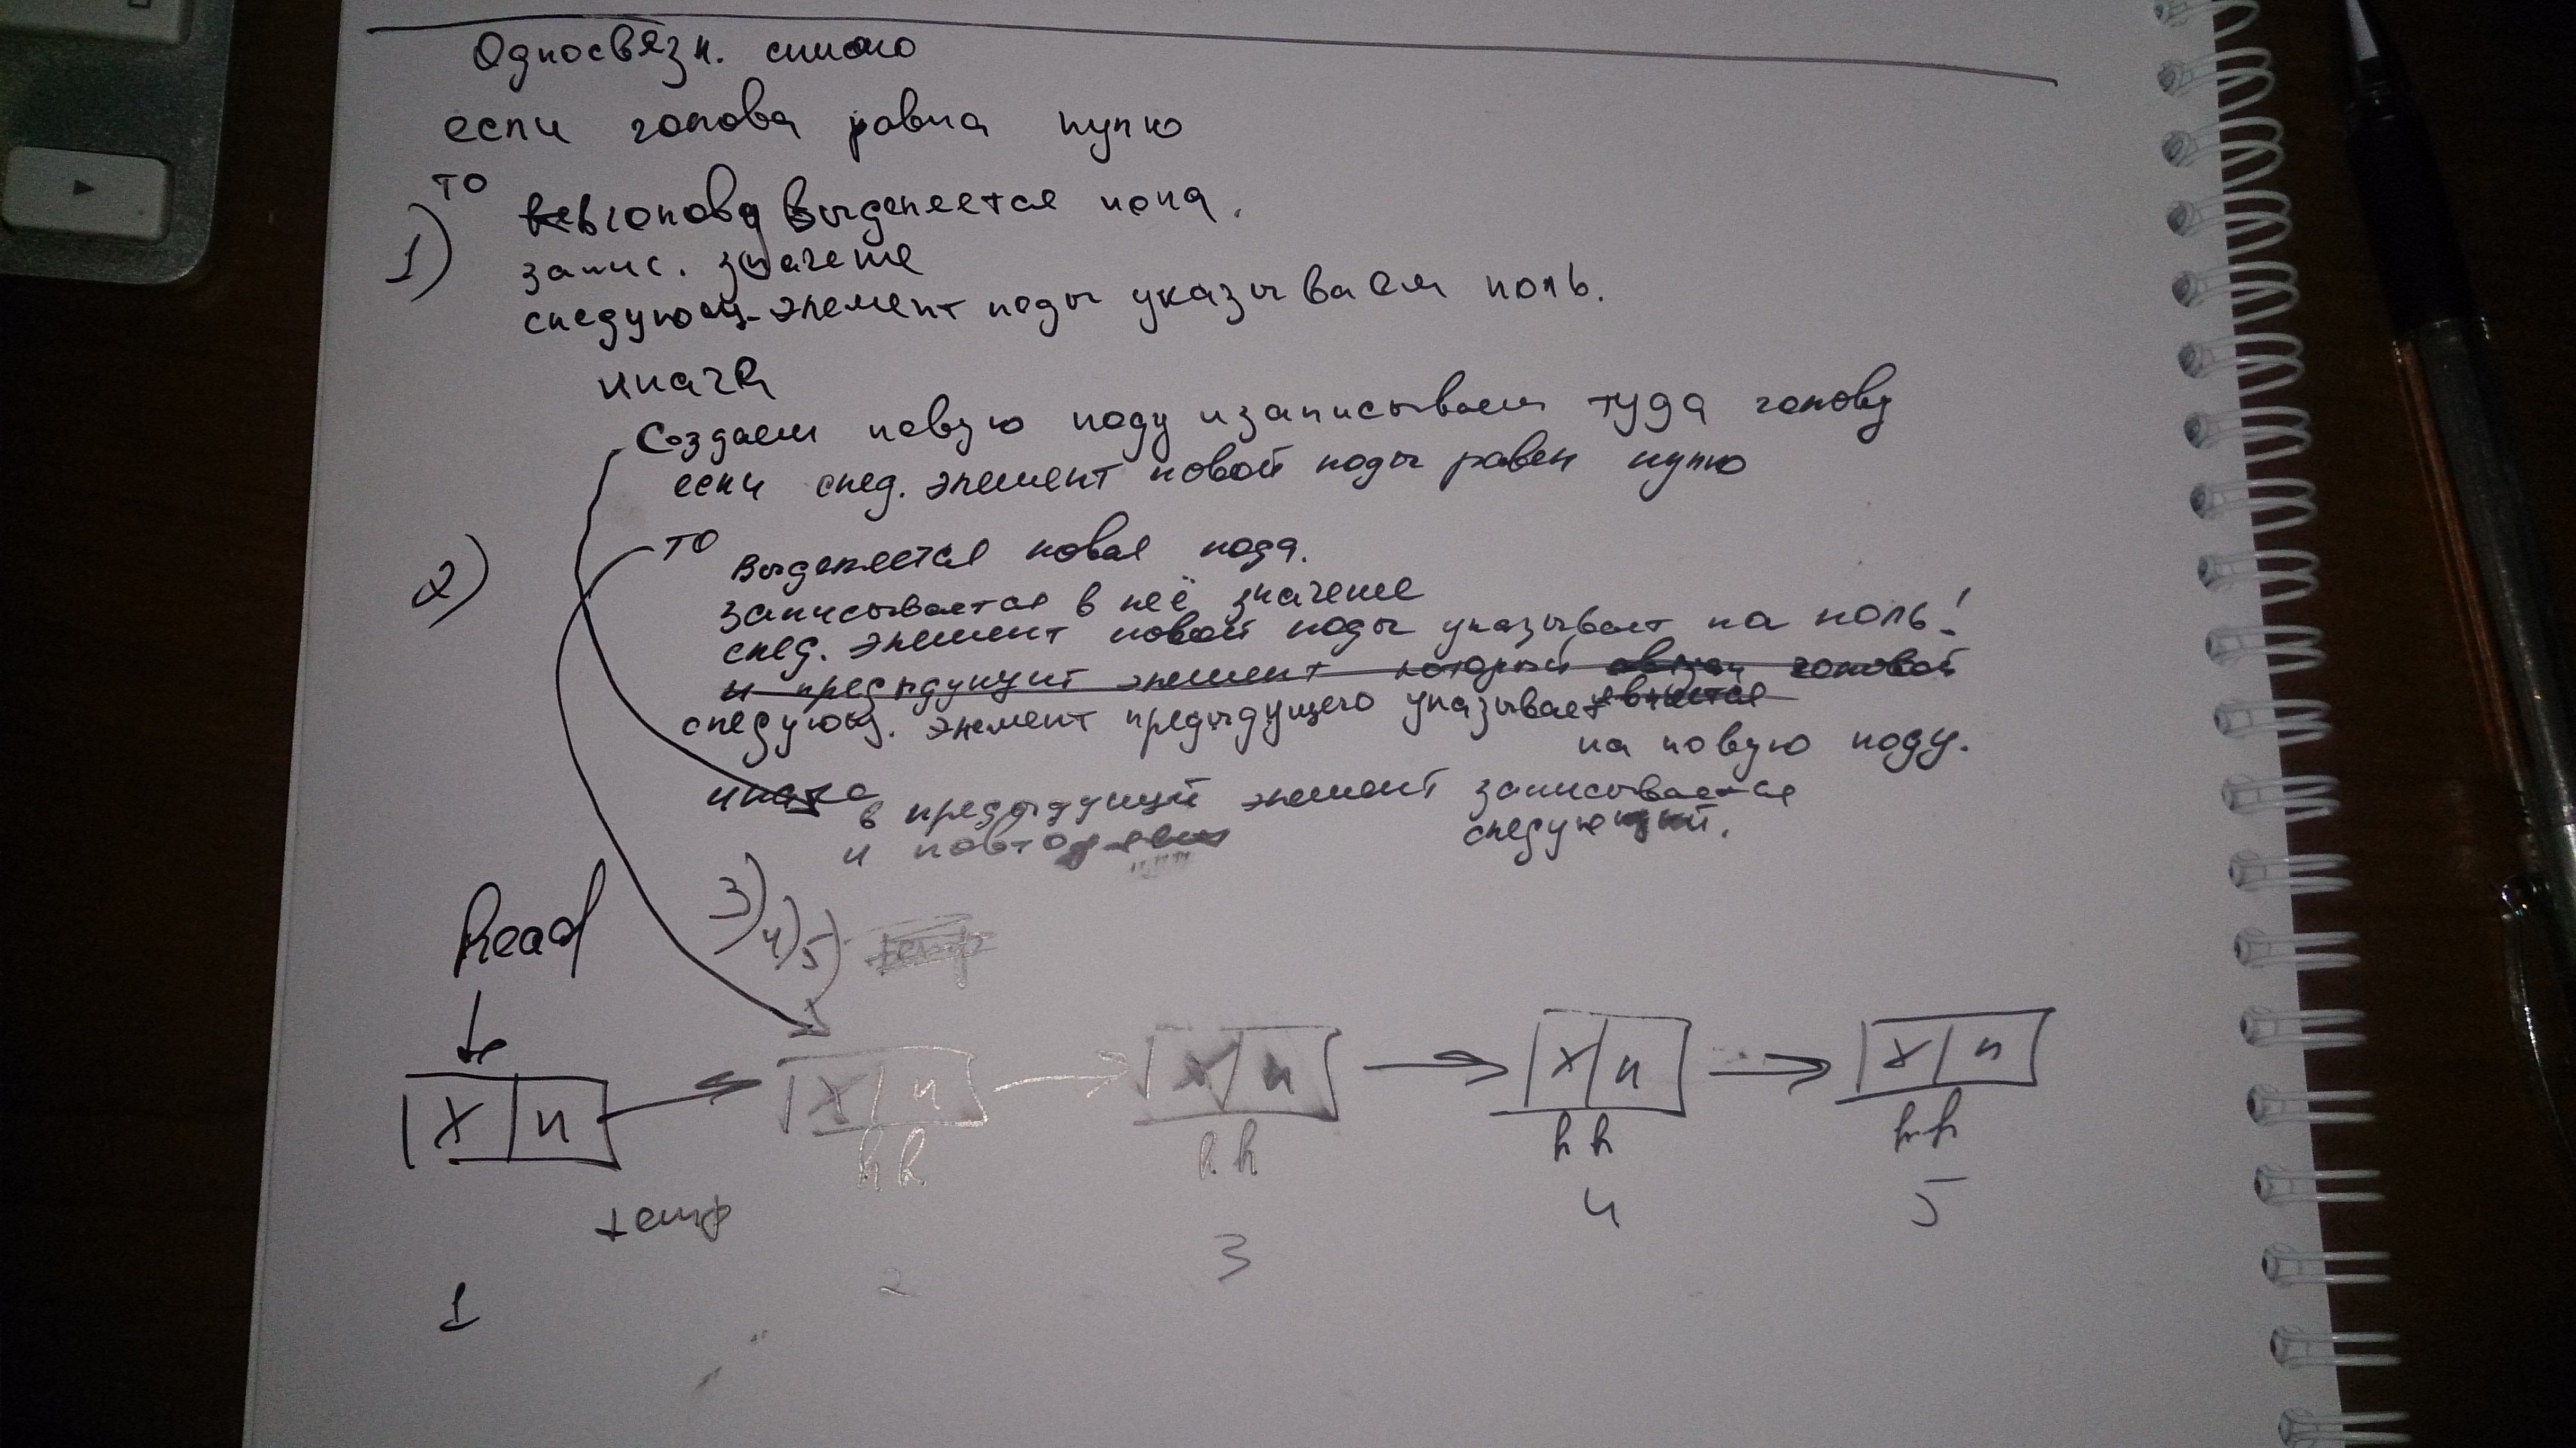 Односвязн. список
если голова равна нулю
то
1) в голову выделяется нода.
запис. значение
следующ. элемент ноды указываем ноль.
иначе
Создаем новую ноду и записываем туда голову
если след. элемент новой ноды равен нулю
2) то выделяется новая нода.
записывается в неё значение
след. элемент новой ноды указывает на ноль!
и предыдущий элемент который головой
следующ. элемент предыдущего указывает
на новую ноду.
иначе в предыдущий элемент записывается
следующий.
и
3) 4) 5) temp
head
x n x n x n x n x n
temp hh hh hh hh
1 2 3 4 5